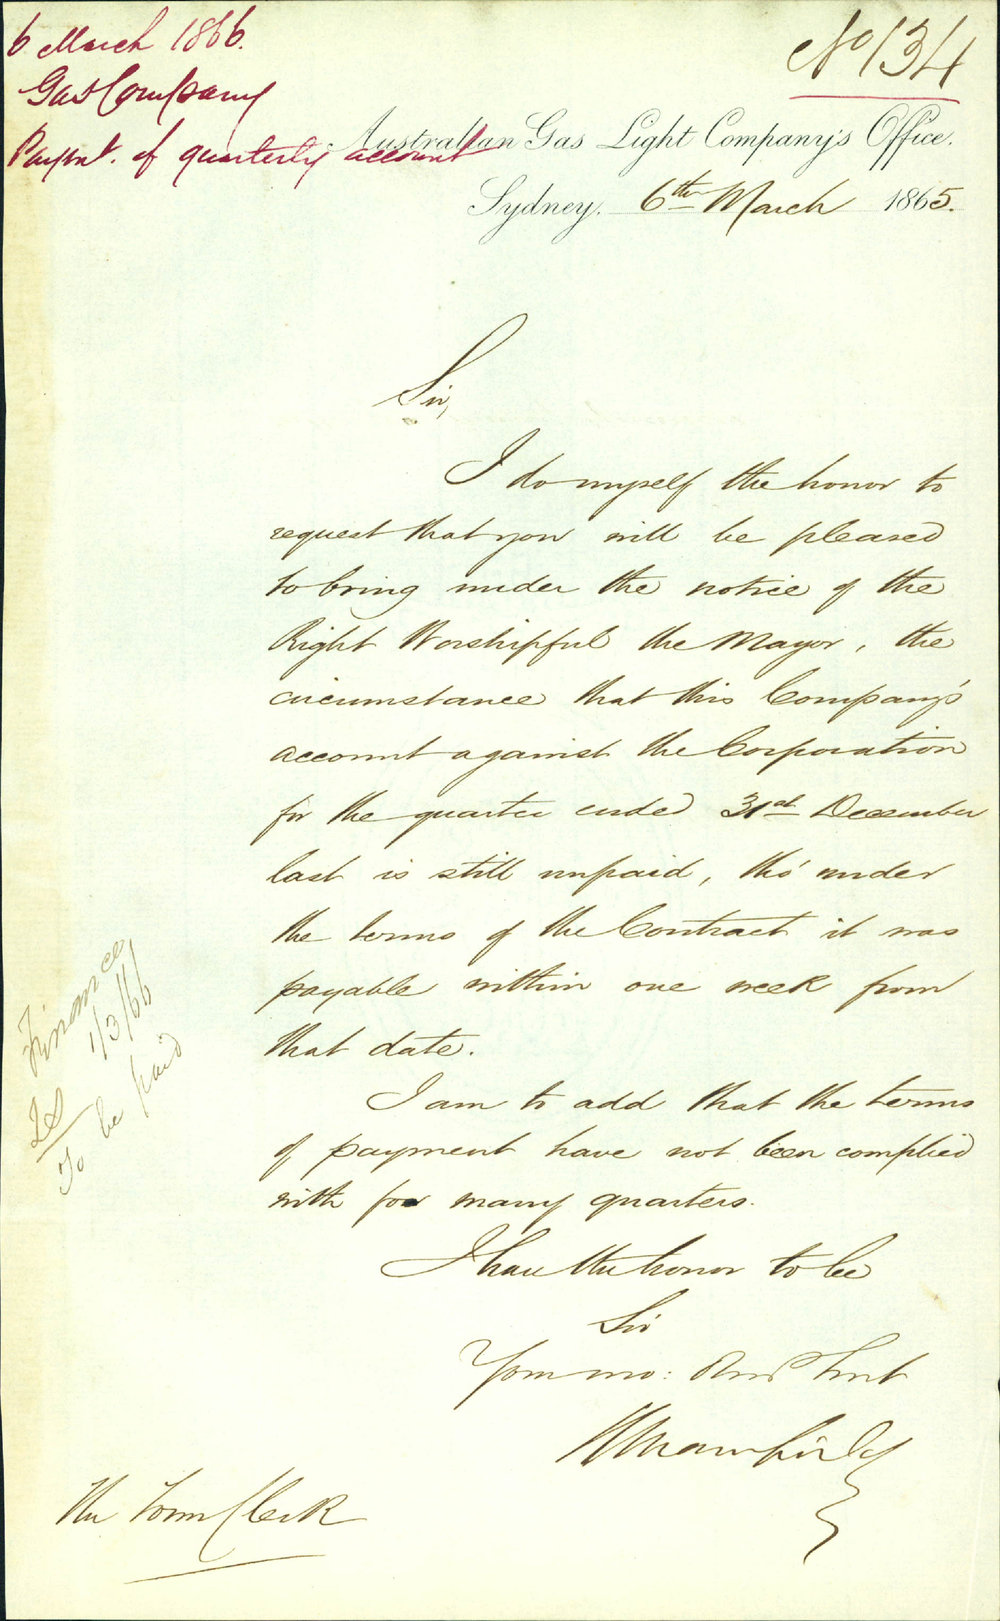 6 March 1866.
Gas Company
Paymt. of quarterly account
No 134
Australian Gas Light Company's Office.
Sydney. 6th March 1865.
Sir,
I do myself the honor to
request that you will be pleased
to bring under the notice of the
Right Worshipful the Mayor, the
circumstance that this Company's
account against the Corporation
for the quarter ended 31st December
last is still unpaid, tho' under
the terms of the Contract it was
payable within one week from
that date.
I am to add that the terms
of payment have not been complied
with for many quarters.
I have the honor to be
Sir
Your mo: Obed Servt
The Town Clerk
Finance
1/3/66
To be paid